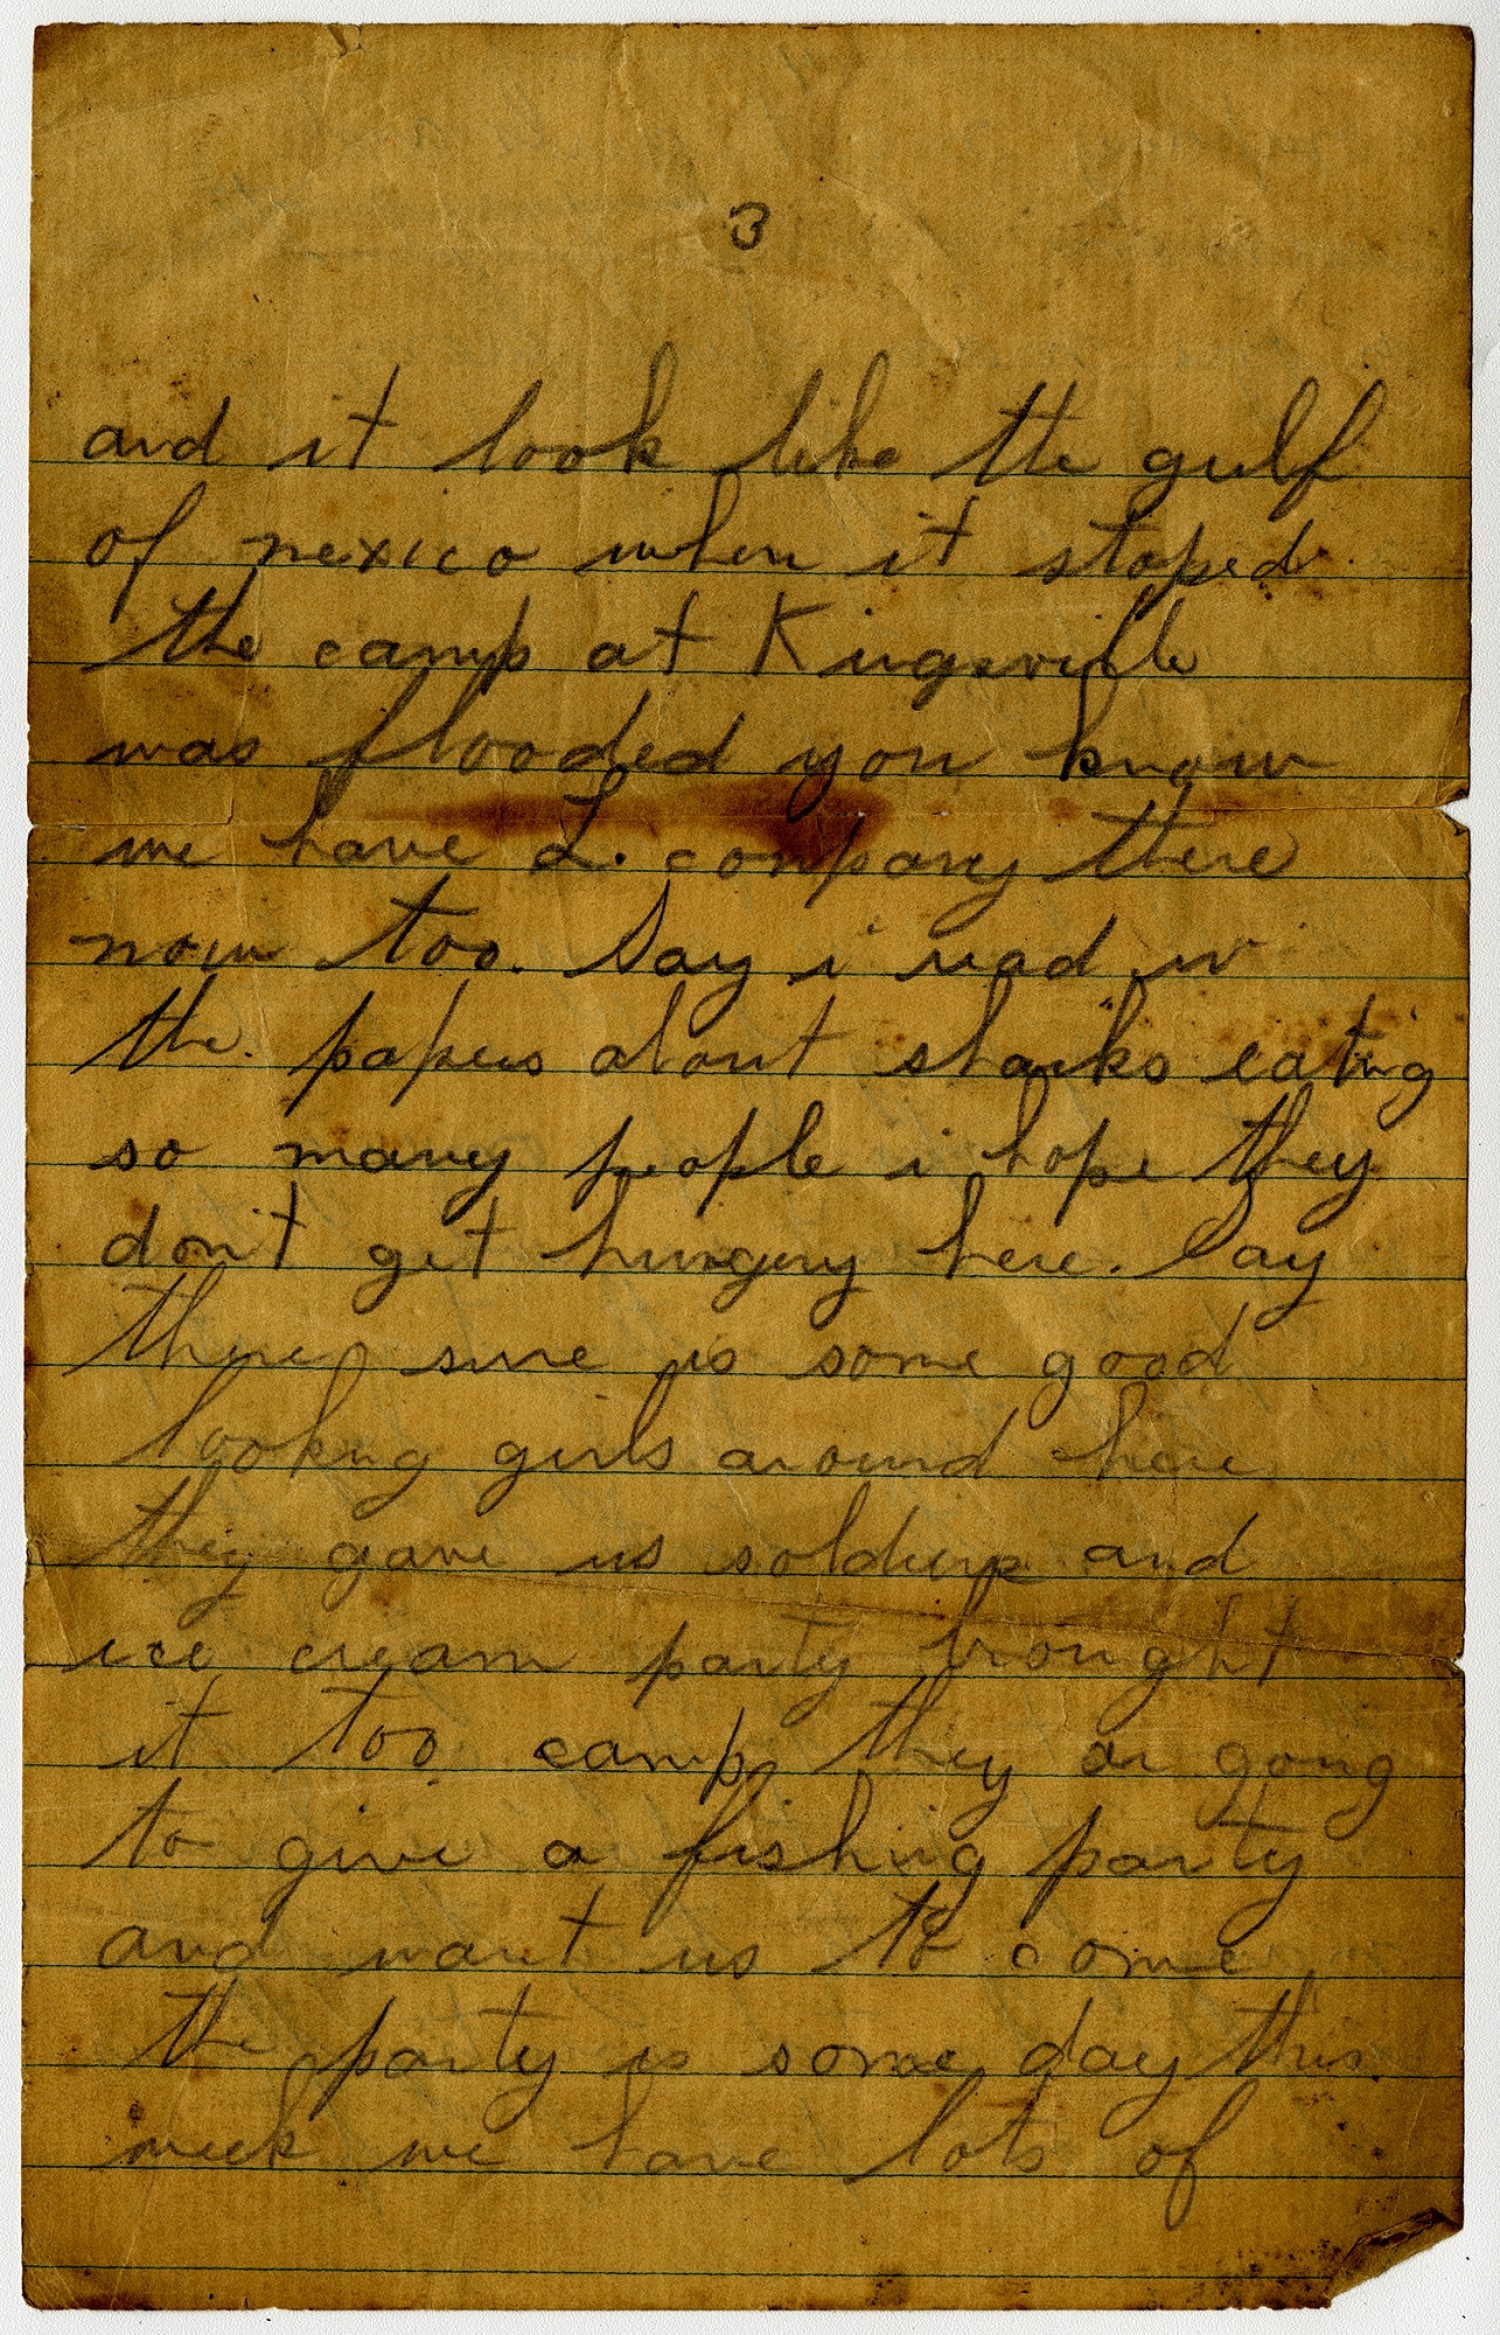 3
and it look like the gulf
of mexico when it stoped
the camp at Kingsville
was flooded you know
we have L. company there
now too. Say i read in
the papers about sharks eating
so many people i hope they
don't get hungery here. Say
there sure is some good
looking girls around here
they gave us soldiers and
ice cream party brought
it too camp they ar going
to give a fishing party
and want us to come
the party is some day this
week we have lots of